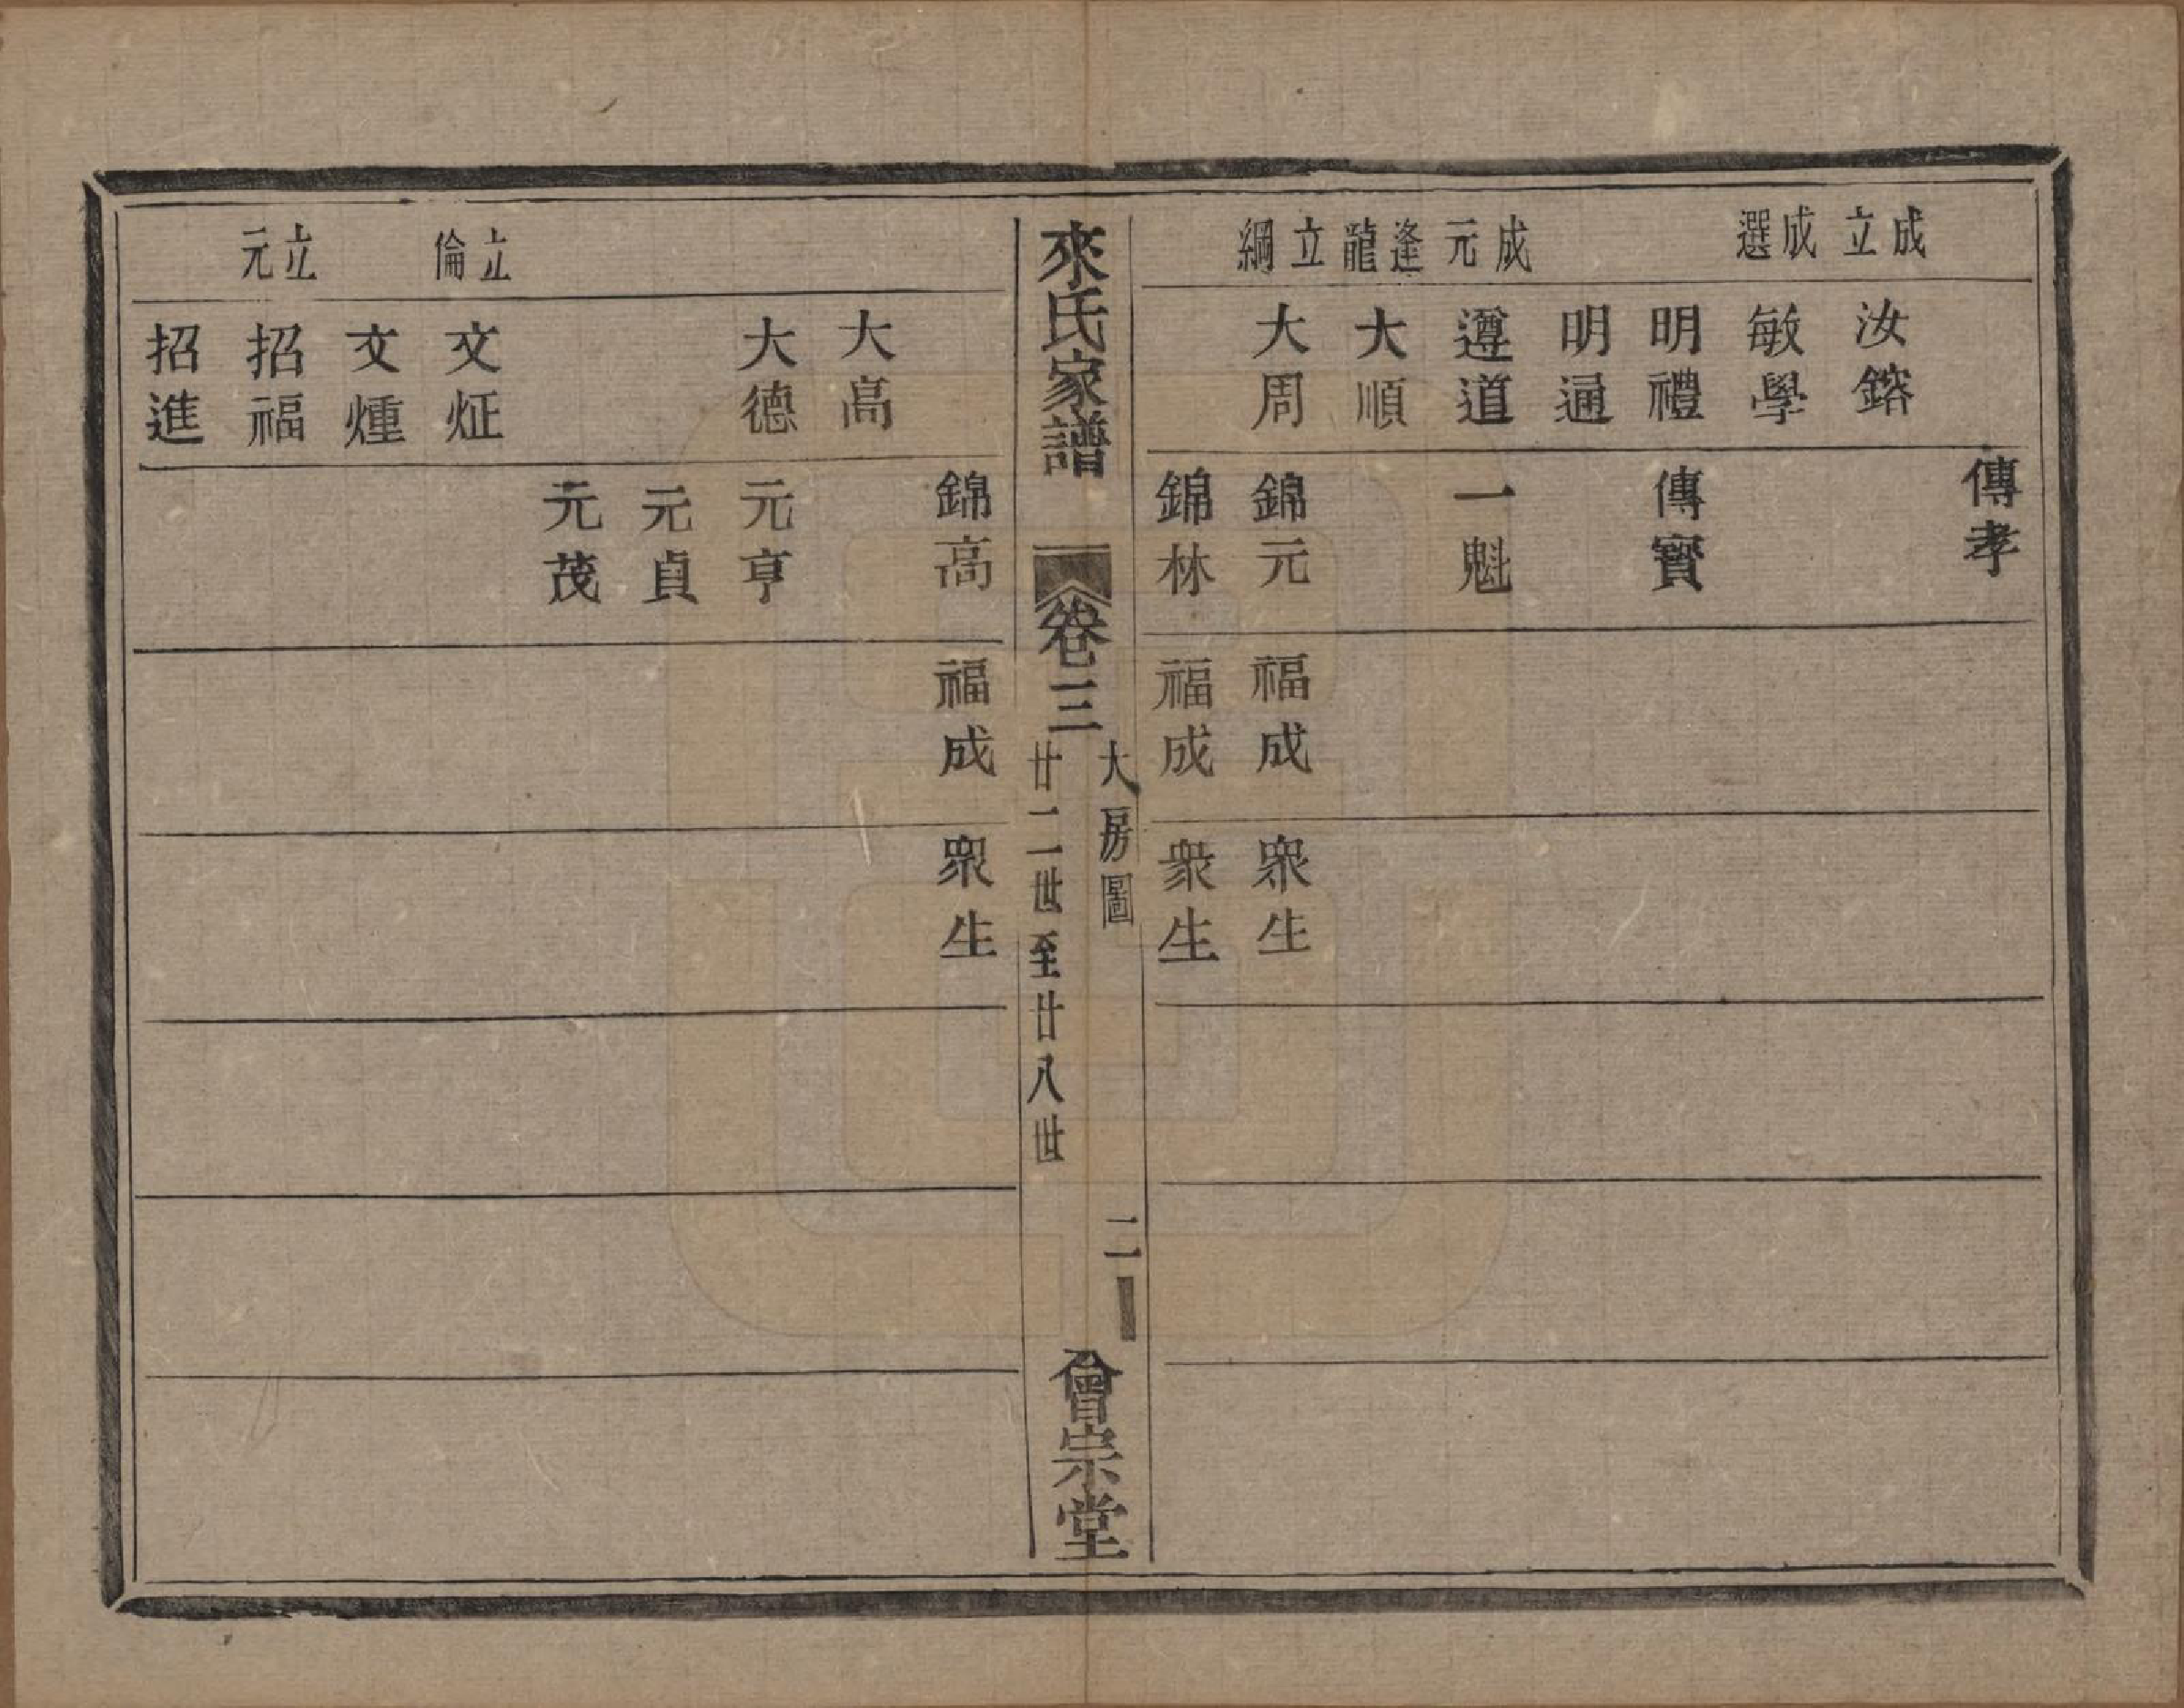 成立 成選 成元 逢龍 立綱
汝鎔 敏學 明禮 明通 遵道 大順 大周
傳孝 傳寶 一魁 錦元 錦林
福成 福成
衆生 衆生
來氏家譜 卷三
大房圖
廿二世至廿八世
二
會宗堂
立倫 立元
大高 大德 文炡 文煄 招福 招進
錦高 元亨 元貞 元茂
福成
衆生